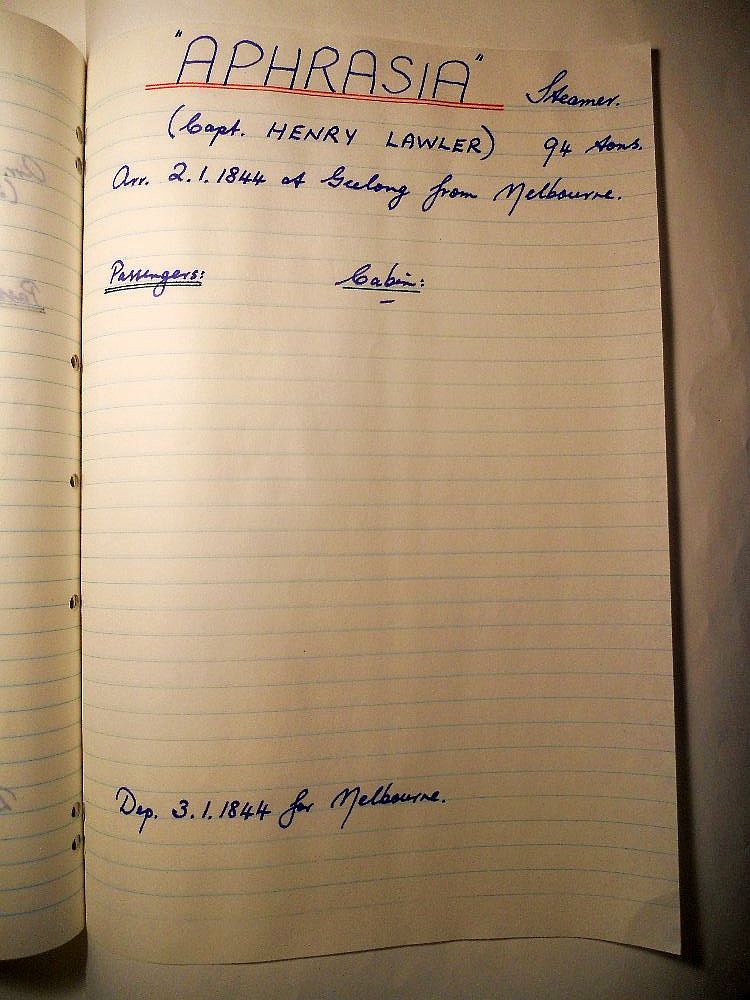 "APHRASIA" Steamer.
(Capt. HENRY LAWLER) 94 tons.
Arr. 2.1.1844 at Geelong from Melbourne.
Passengers: Cabin:
Dep. 3.1.1844 for Melbourne.